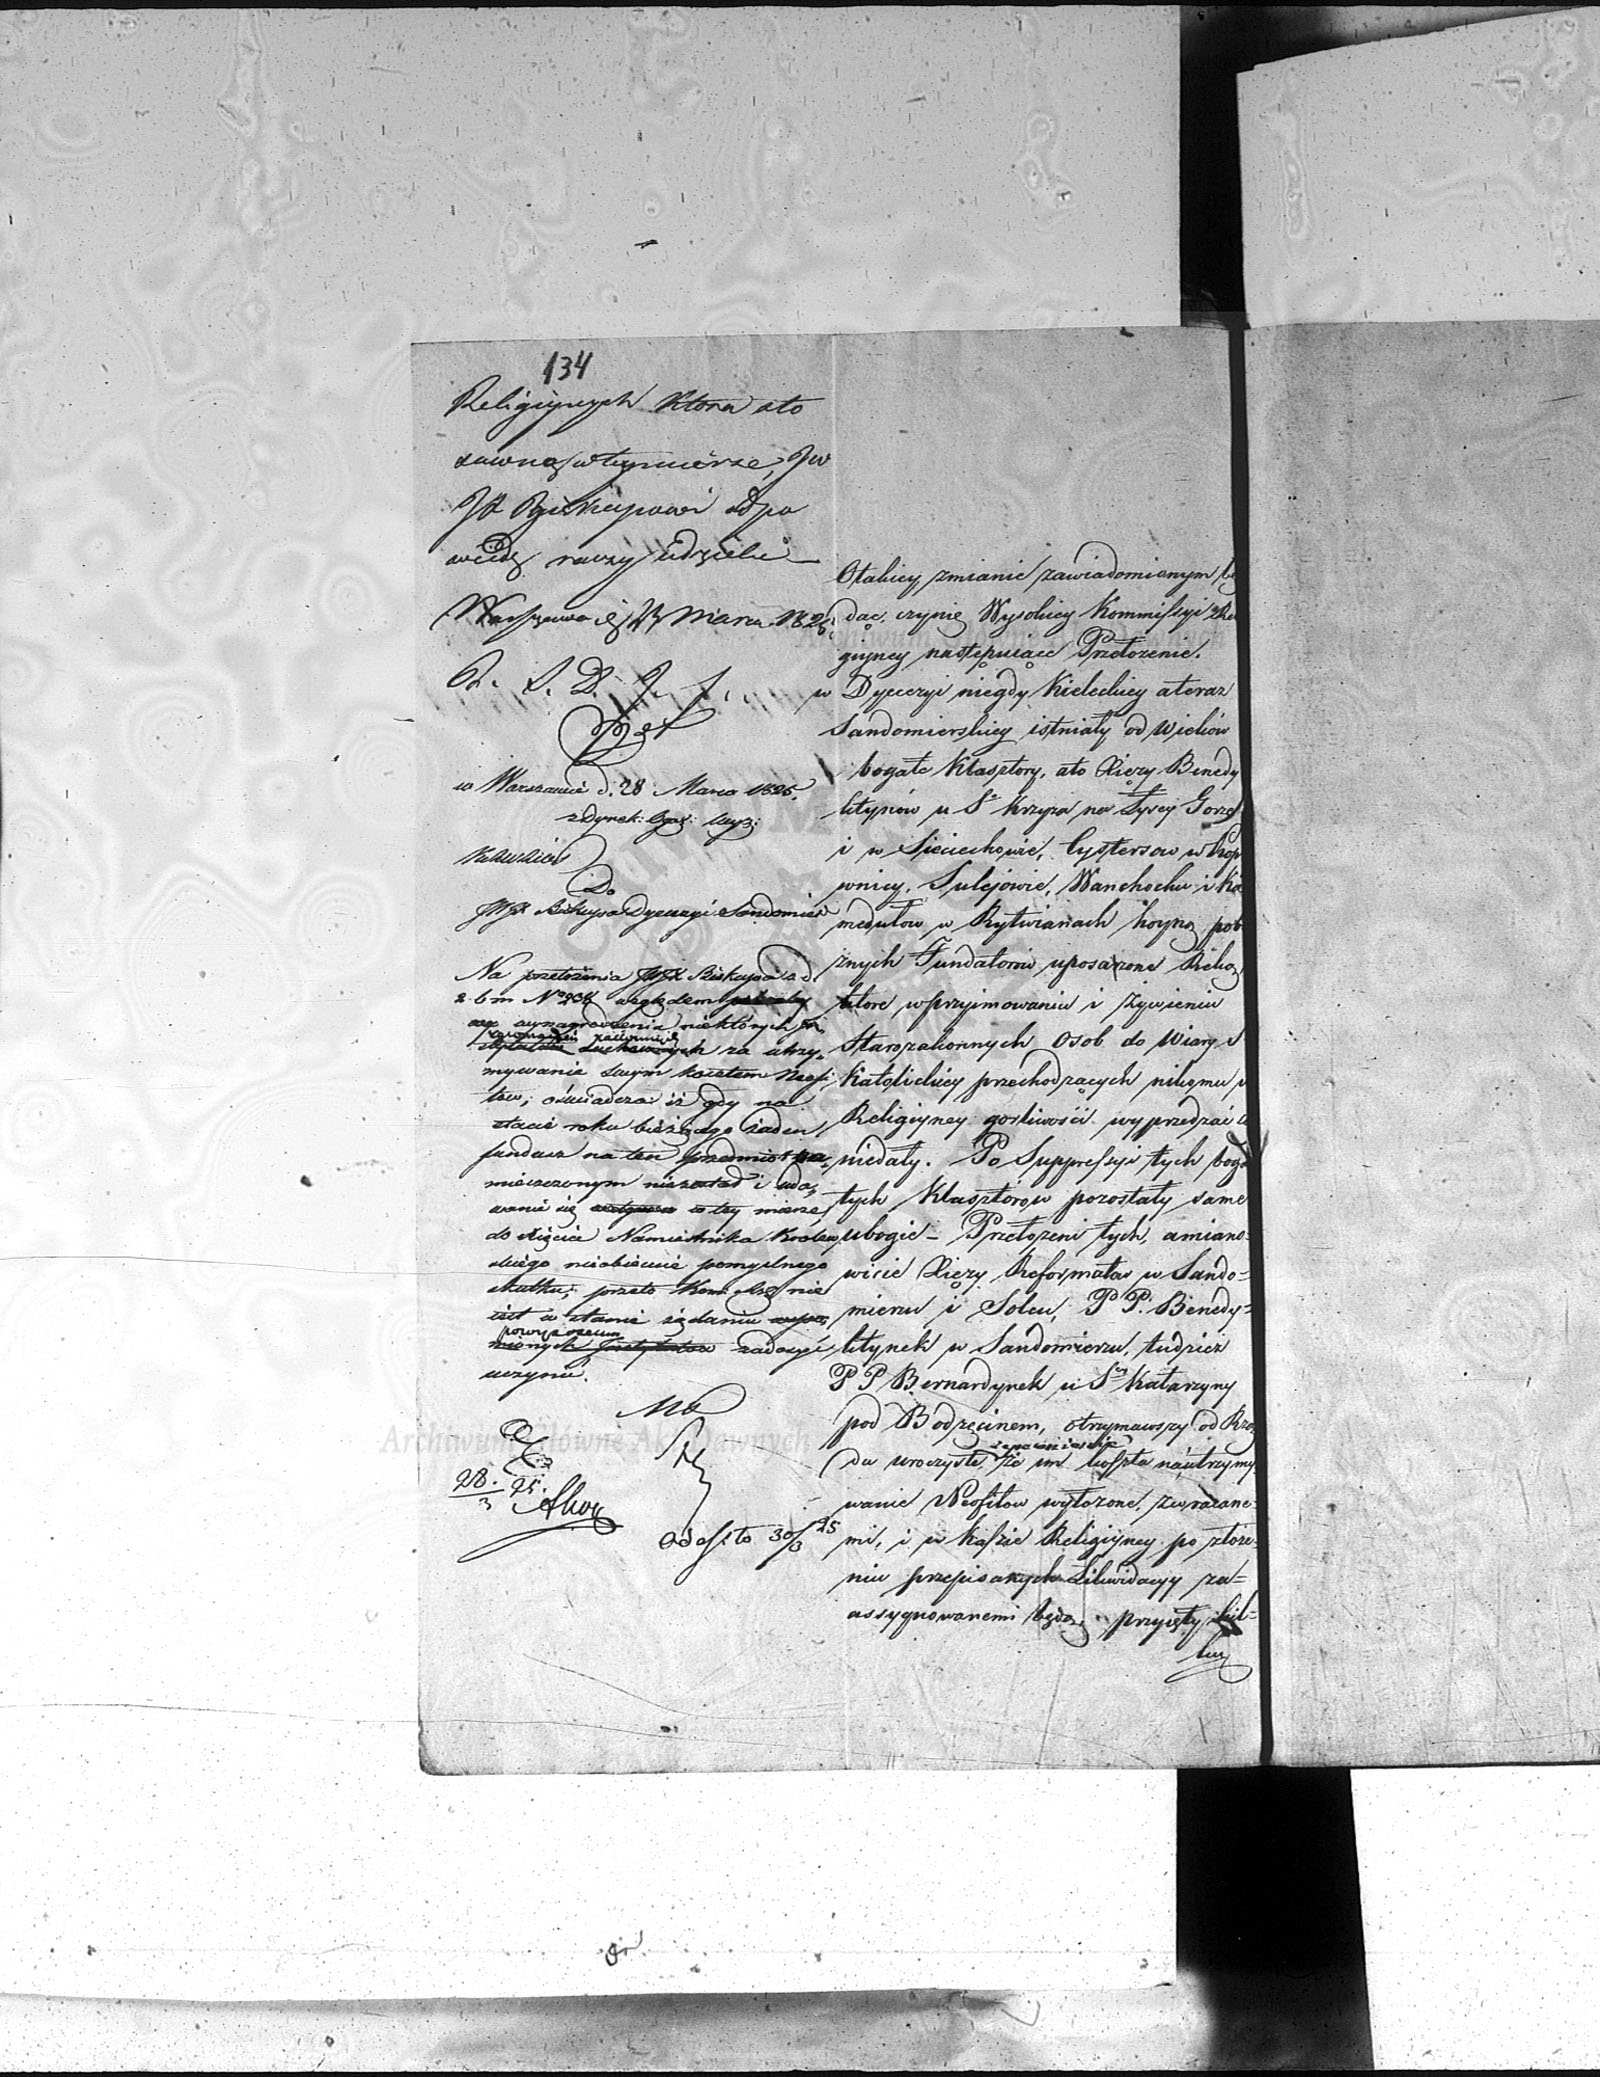 134
Religijnych która sto
sowną w tey mierze, Jw
JX Biskupowi odpo
wiedź raczy udzielić
Warszawa d. Marca 1825
w Warszawie d. 28 Marca 1825.
Do
JWJX Biskupa Dyecezyi Sandomier
Na przełożenia JWJX Biskupa z d.
2 b m No 234 względem
wynagrodzenia niektórych
za utrzy-
mywanie swym kosztem Neofi
tów, oświadcza iż gdy na
etacie roku bieżącego żaden
fundusz na ten przedmiot za-
mieszczonym niezostał i uda
wanie się w tey mierze
do Xięcia Namiestnika Królew
skiego nieobiecuie pomyślnego
skutku; przeto Kom: Rzą nie
iest w stanie żądaniu
powyższemu
zadosyć
uczynić.
28/3 25.
Odesłto 30/3 25
Otakiey zmianie zawiadomionym bę
dąc, czynię Wysokiey Kommissyi Reli
giyney następuiące Przełożenie.
w Dyecezyi niegdy Kieleckiey a teraz
Sandomierskiey istniały od wieków
bogate Klasztory, a to Xięży Benedy
ktynów u Sgo Krzyża na Łysey Górze
i w Sieciechowie, Cystersow w Kopr
wnicy, Sulejowie, Wanchocku i Ka
medułow w Rytwianach hoyną pob
żnych Fundatorów uposażone Ręką
które w przyimowaniu i żywieniu
Starozakonnych Osob do Wiary S
Katolickiey przechodzących nikomu w
Religiyney gorliwości wyprzedzać się
niedały. Po Suppressyi tych boga
tych Klasztorów pozostały same
ubogie – Przełożeni tych, a miano-
wicie Xięży Reformatow w Sando-
mierzu i Solcu, P P. Benedy-
ktynek w Sandomierzu, tudzież
P P Bernardynek u Sey Katarzyny
pod Bodzęcinem, otrzymawszy od Rzą
zapewnienie
du uroczyste, że im koszta na utrzymy
wanie Neofitow wyłożone, zwracane-
mi, i w Kassie Religiyney po złoże-
niu przepisanych Likwidacyy za-
assygnowanemi będą, przyięły kil-
ku